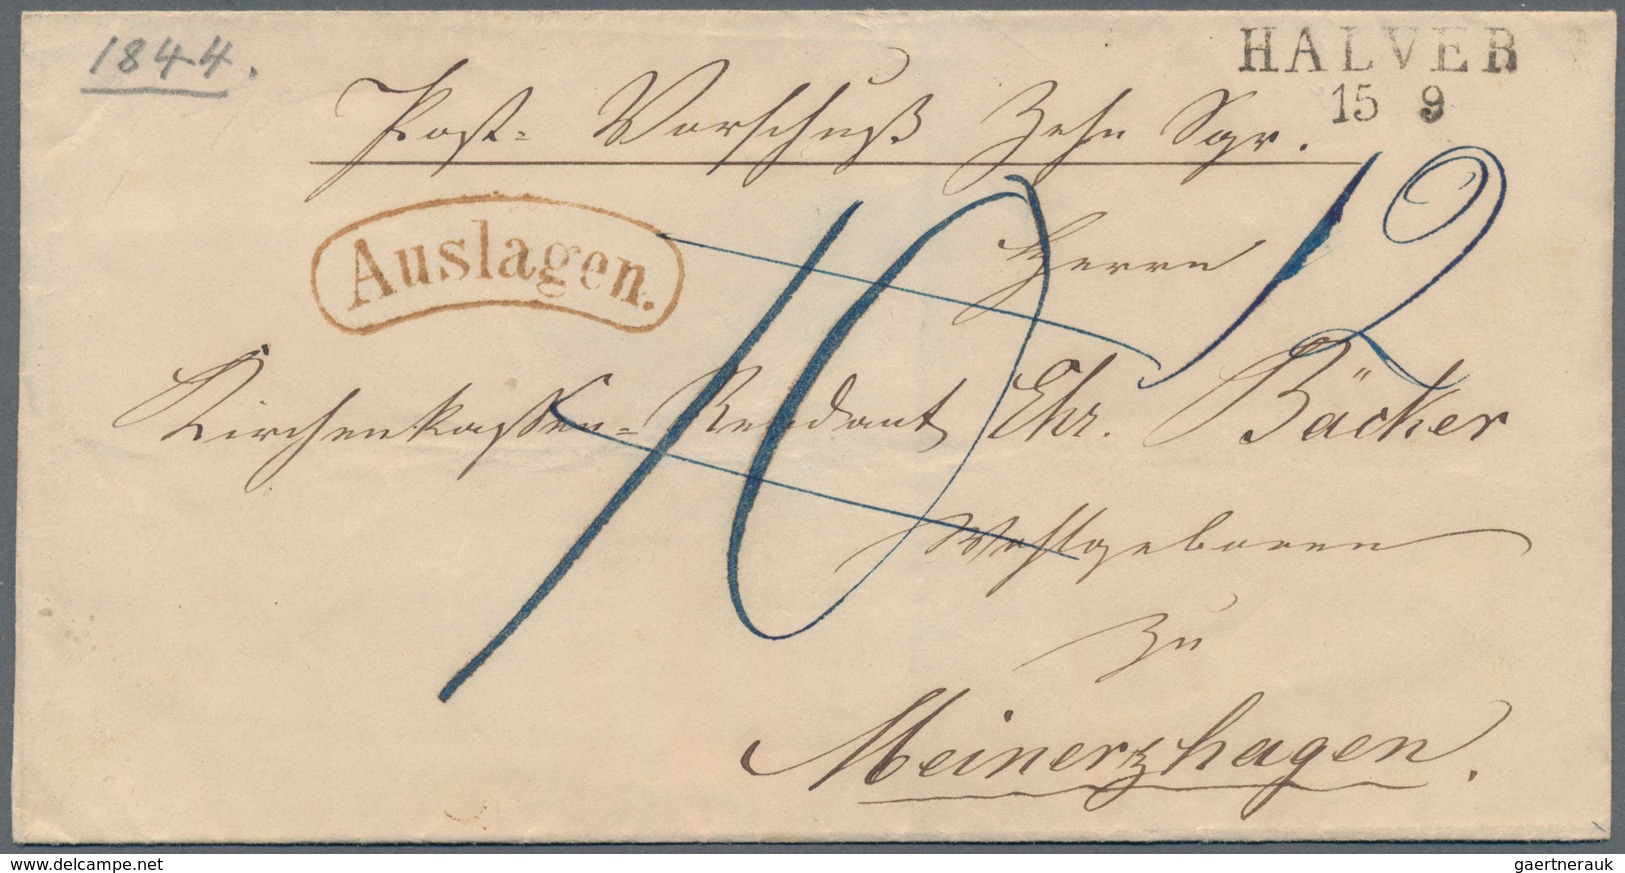 1844.
HALVER
15 9
Post- Vorschuß Zehn Sgr.
Auslagen.
10
12
Herrn
Kirchenkassen- Rendant Ehr. Bäcker
Wohlgeboren
zu
Meinerzhagen.
www.delcampe.net
gaertnerauk